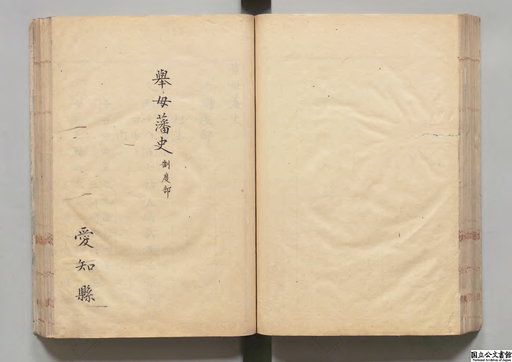 舉母藩史 制度部
愛知縣
国立公文書館
National Archives of Japan